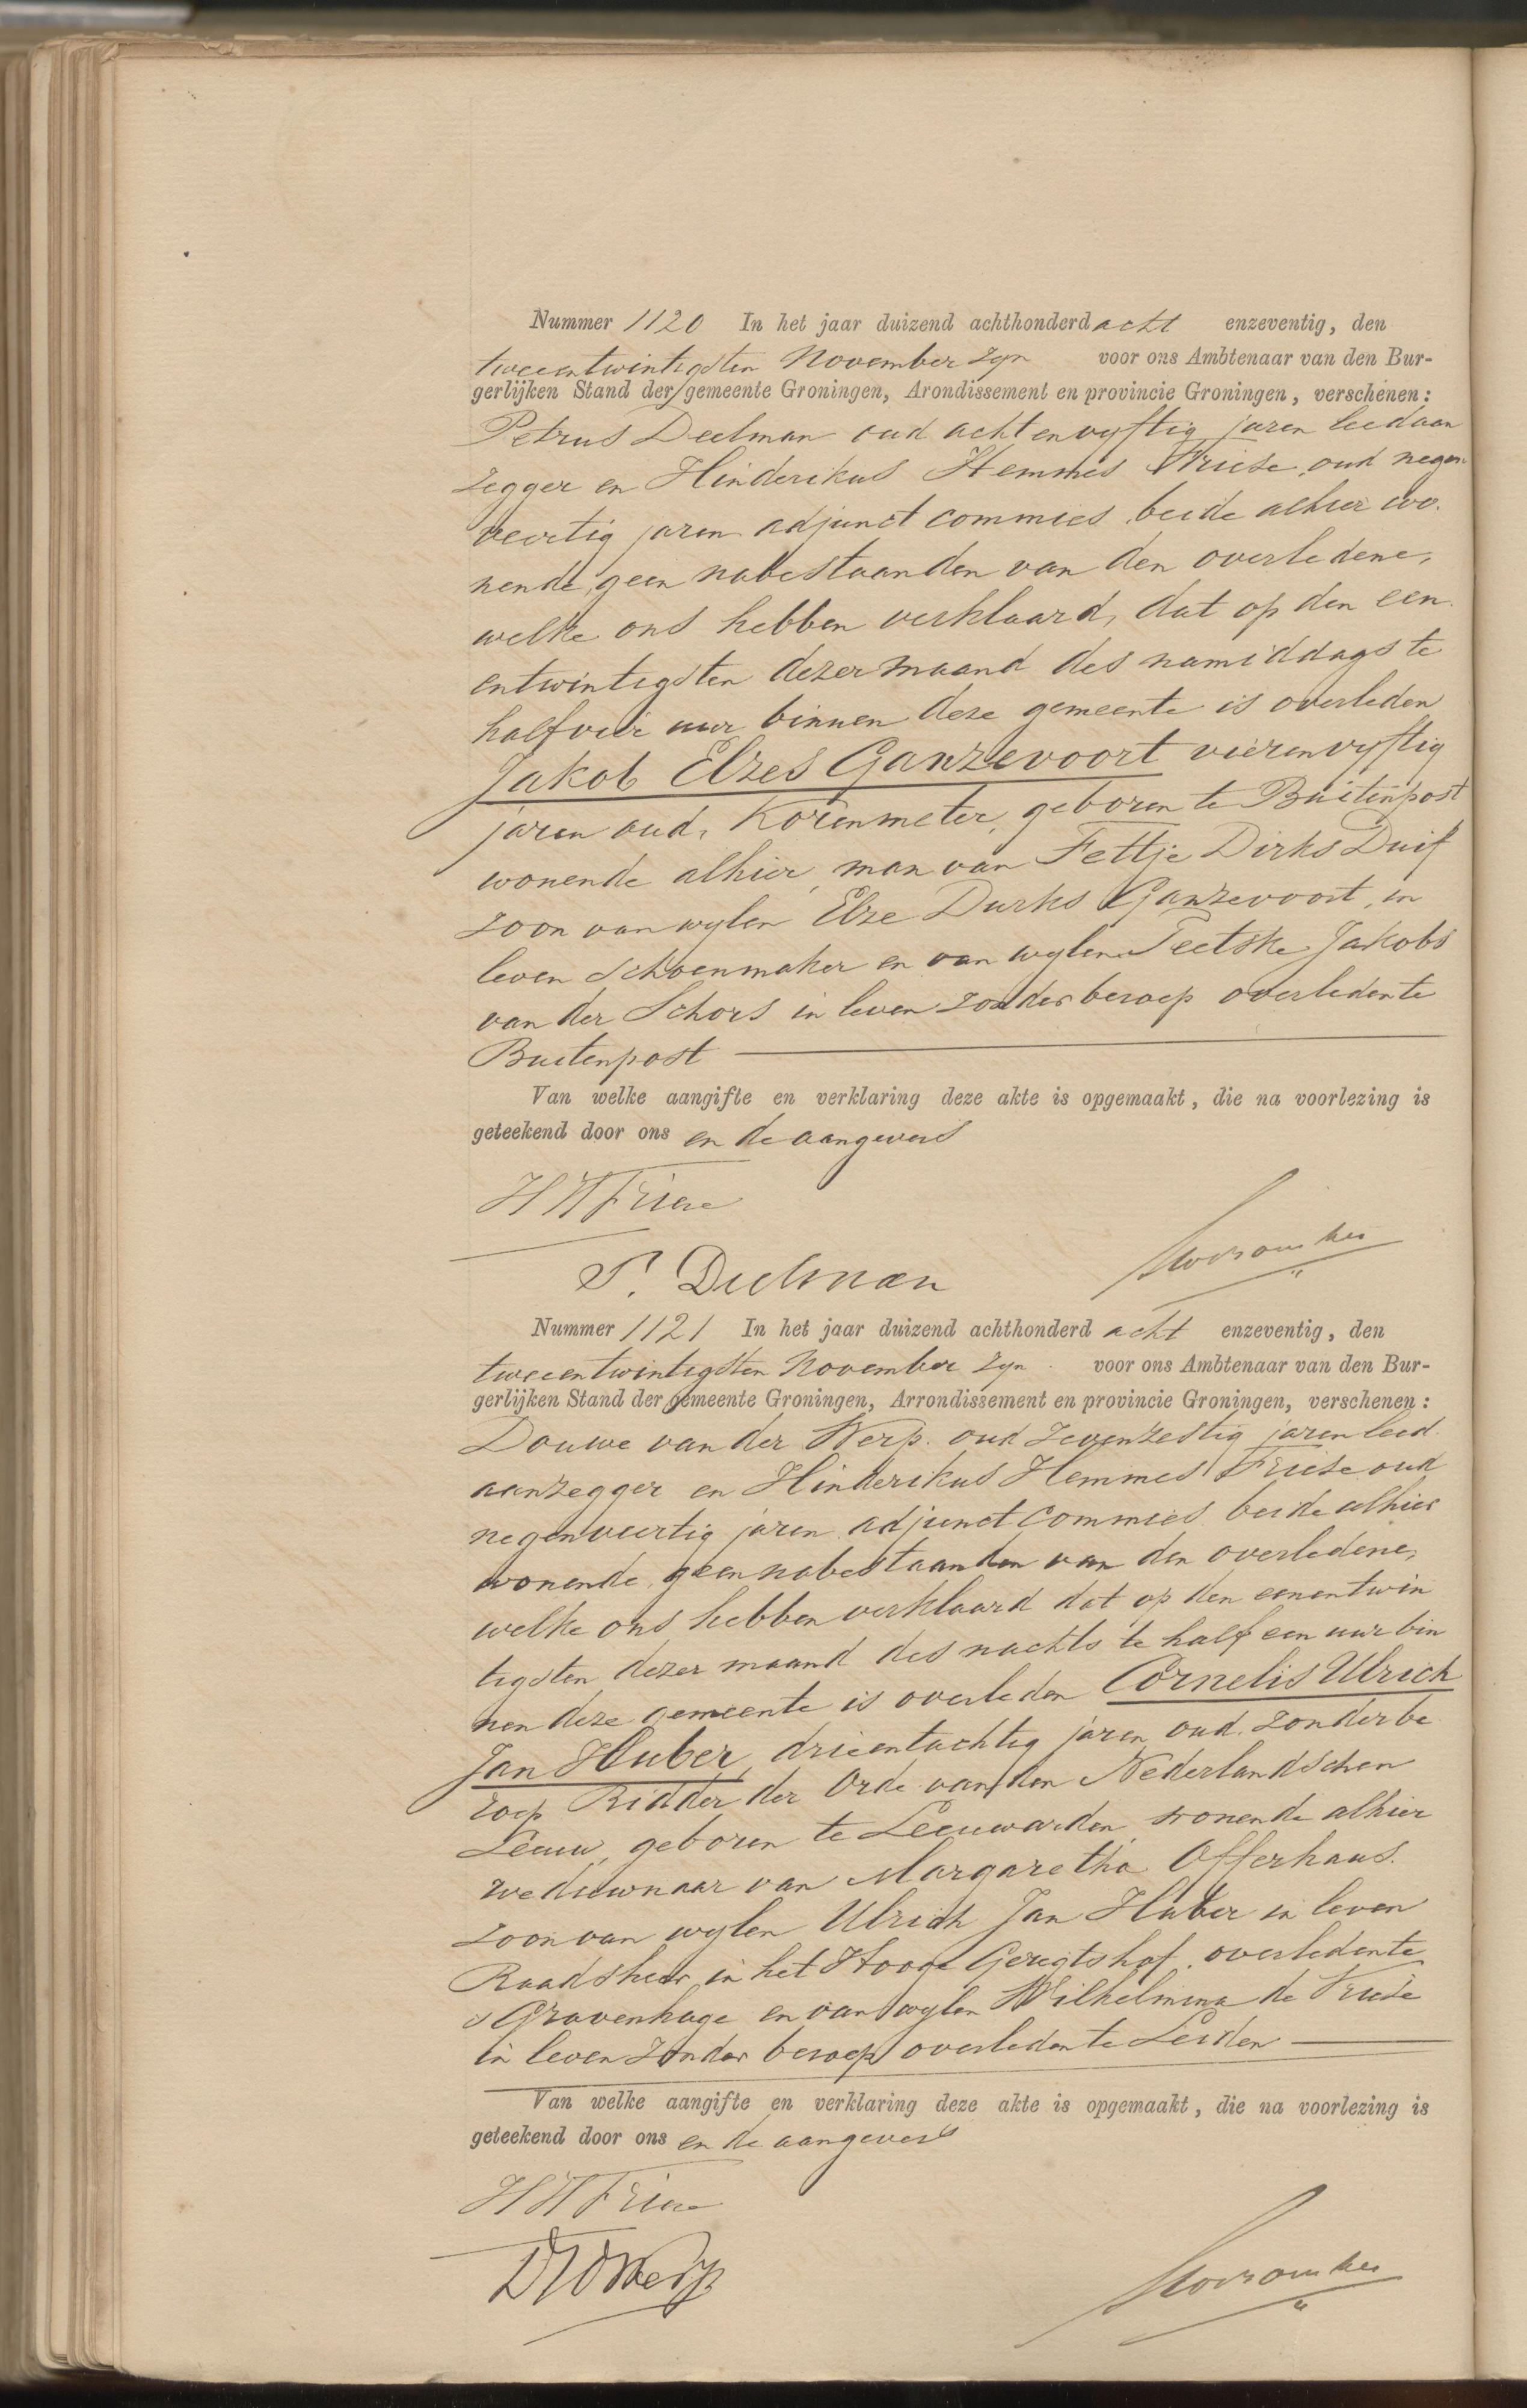 Nummer 1120 In het jaar duizend achthonderd acht enzeventig, den
tweeentwintigsten November zyn voor ons Ambtenaar van den Bur-
gerlijken Stand der gemeente Groningen, Arondissement en provincie Groningen, verschenen:
Petrus Deelman oud achtenvyftig jaren leedaan
zegger en Hinderikus Hemmes Friese oud negen
veertig jaren adjunct commies beide alhier wo-
nende, geen nabestaanden van den overledene,
welke ons hebben verklaard, dat op den een
entwintigsten dezer maand des namiddags te
half vier uur binnen deze gemeente is overleden
Jakob Elzes Ganzevoort vierenvyftig
jaren oud, Korenmeter, geboren te Buitenpost
wonende alhier, man van Fettje Dirks Duif
zoon van wylen Elze Durks Ganzevoort, in
leven schoenmaker en van wylen Teetske Jakobs
van der Schors in leven zonder beroep overleden te
Buitenpost
Van welke aangifte en verklaring deze akte is opgemaakt, die na voorlezing is
geteekend door ons en de aangevers
HH Friese
P. Deelman
Nummer 1121 In het jaar duizend achthonderd acht enzeventig, den
tweeentwintigsten November zyn voor ons Ambtenaar van den Bur-
gerlijken Stand der gemeente Groningen, Arrondissement en provincie Groningen, verschenen:
Douwe van der Werp oud zevenzestig jaren leed
aanzegger en Hinderikus Hemmes Friese oud
negenveertig jaren adjunct commies beide alhier
wonende, geen nabestaanden van den overledene,
welke ons hebben verklaard dat op den eenentwin
tigsten dezer maand des nachts te half een uur bin
nen deze gemeente is overleden Cornelis Ulrich
Jan Huber, drieentachtig jaren oud zonder be
roep Ridder der Orde van den Nederlandschen
Leeuw, geboren te Leeuwarden, wonende alhier
weduwnaar van Margaretha Offerhaus.
zoon van wylen Ulrich Jan Huber in leven
Raadsheer in het Hooge Geregtshof overleden te
s Gravenhage en van wylen Wilhelmina de Friese
in leven zonder beroep overleden te Leiden
Van welke aangifte en verklaring deze akte is opgemaakt, die na voorlezing is
geteekend door ons en de aangevers
HH Friese
DvdWerp